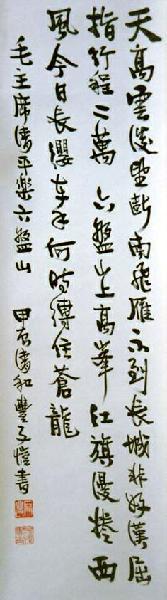 天高雲淡望斷南飛雁不到長城非好漢屈
指行程二萬六盤山上高峯紅旗漫捲西
風今日長纓在手何時縛住蒼龍
毛主席清平樂六盤山 甲辰清和豐子愷書